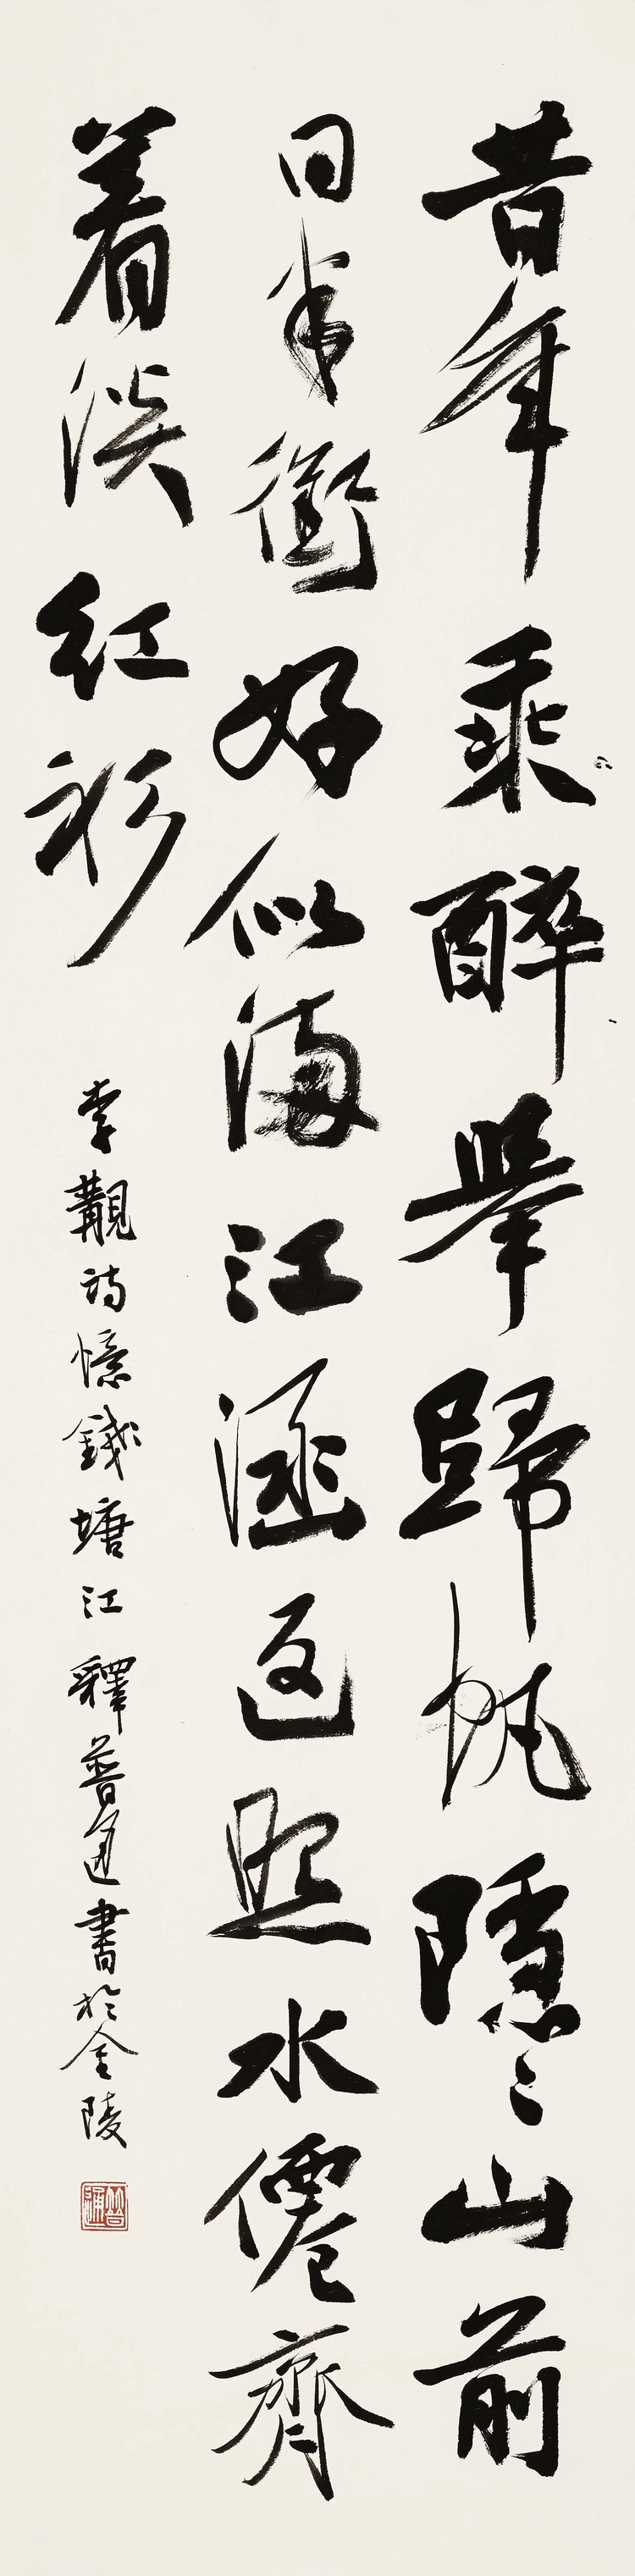 昔年乘醉舉歸帆隱々山前
日半銜好似滿江涵返照水僊齊
着淡紅衫
李觀詩憶錢塘江釋普通書於金陵
普通